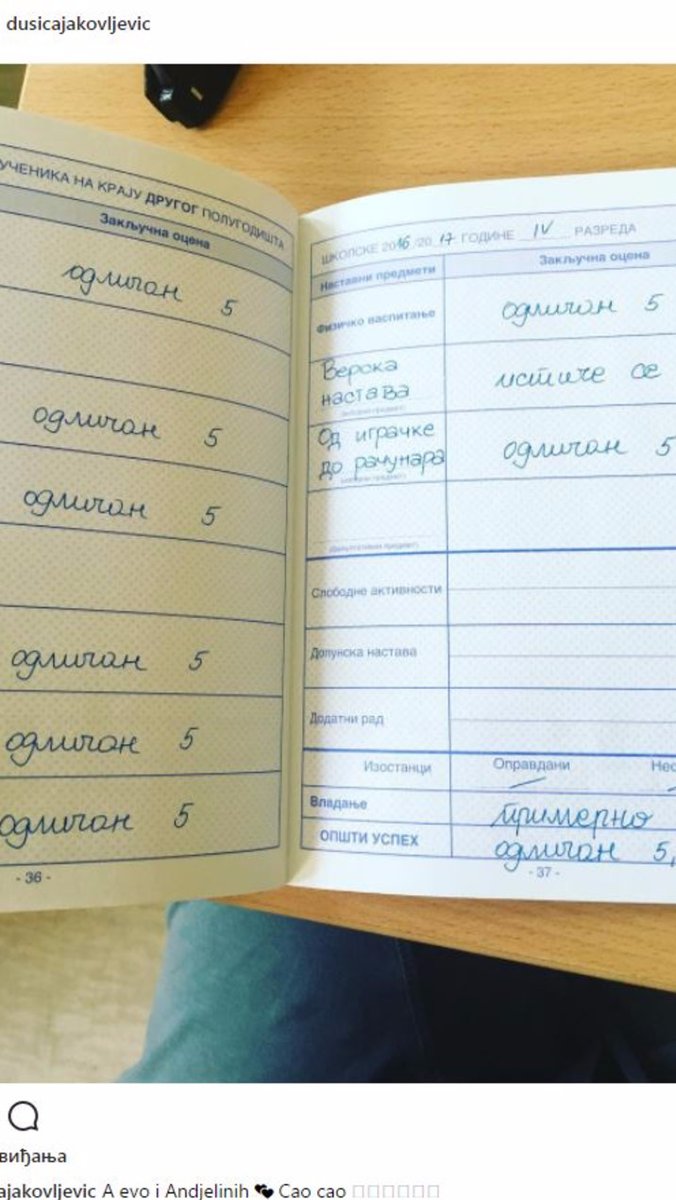 dusicajakovljevic
УЧЕНИКА НА КРАЈУ ДРУГОГ ПОЛУГОДИШТА
Закључна оцена
одличан 5
одличан 5
одличан 5
одличан 5
одличан 5
одличан 5
- 36 -
ШКОЛСКЕ 2016/2017 ГОДИНЕ IV РАЗРЕДА
Наставни предмети Закључна оцена
Физичко васпитање одличан 5
Верска
настава истиче се
Од играчке
до рачунара одличан 5
Слободне активности
Допунска настава
Додатни рад
Изостанци Оправдани
Владање примерно
ОПШТИ УСПЕХ одличан 5,
- 37 -
виђања
ajakovljevic A evo i Andjelinih 💕 Cao cao